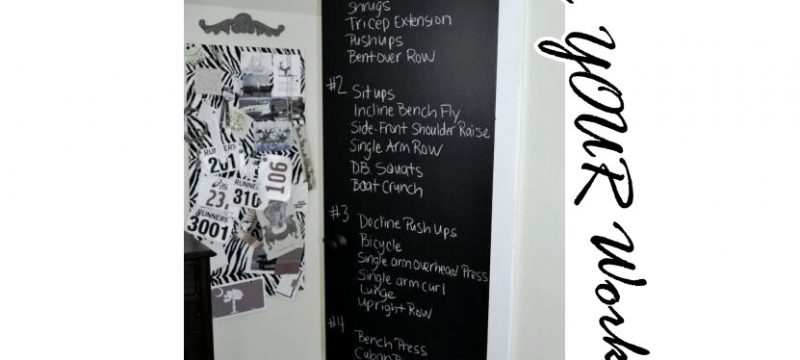 Shrugs
Tricep Extension
Pushups
Bentover Row
#2 Situps
Incline Bench Fly
Side-Front Shoulder Raise
Single Arm Row
D.B. Squats
Boat Crunch
#3 Decline Push Ups
Bicycle
Single arm overhead Press
Single arm curl
Lunge
Upright Row
#4
Bench Press
RUNNERS
201
106
23
310
RUNNERS
3001
YOUR Work